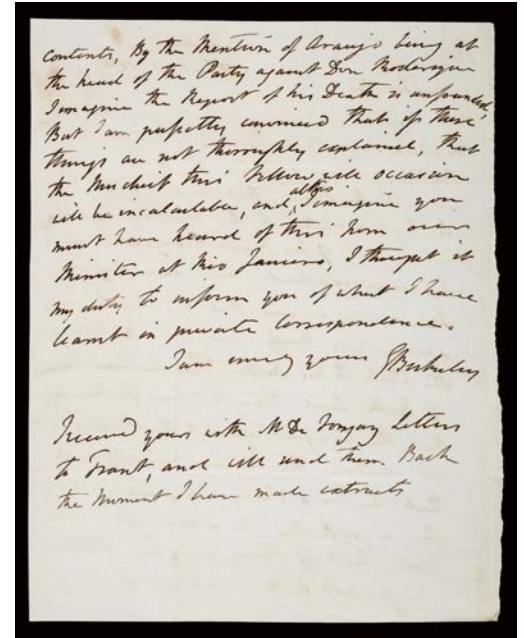 contents, By the Mention of Araujo being at
the head of the Party against Don Roderigue
I imagine the Report of his Death is unfounded,
But I am perfectly convinced that if these
things are not thoroughly explained, that
the Mischief this Fellow will occasion
will be incalculable, and, altho I imagine you
must have heard of this from our
Minister at Rio Janeiro, I thought it
my duty to inform you of what I have
learnt in private Correspondence.
I am yours GBerkeley
I received yours with M De Letters
to Trant, and will send them Back
the Moment I have made extracts